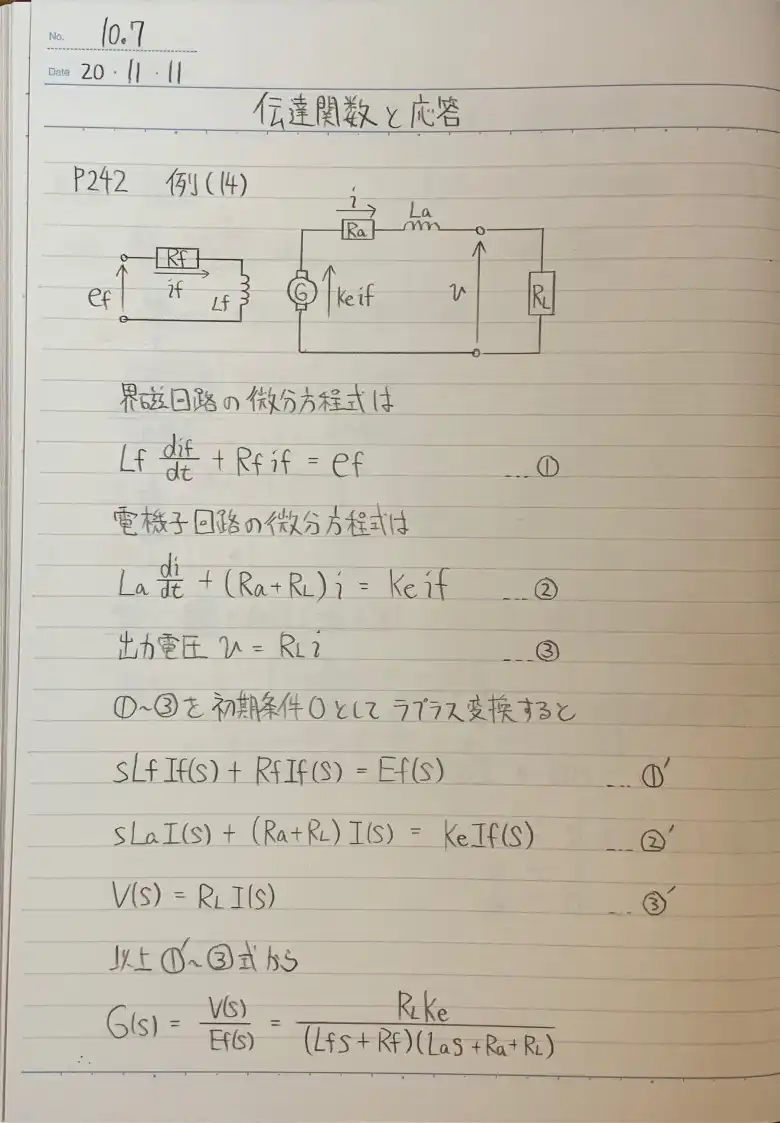 No. 10.7
Date 20・11・11
伝達関数と応答
P242 例(14)
i
La
Ra
Rf
if
Lf
ef
G
Ke if
v
RL
界磁回路の微分方程式は
Lf dif/dt + Rf if = ef ...①
電機子回路の微分方程式は
La di/dt + (Ra+RL) i = Ke if ...②
出力電圧 v = RL i ...③
①~③を初期条件0としてラプラス変換すると
sLf If(s) + Rf If(s) = Ef(s) ...①'
sLa I(s) + (Ra+RL) I(s) = Ke If(s) ...②'
V(s) = RL I(s) ...③'
以上①'~③式から
G(s) = V(s)/Ef(s) = RL Ke/(Lf s + Rf)(La s + Ra + RL)